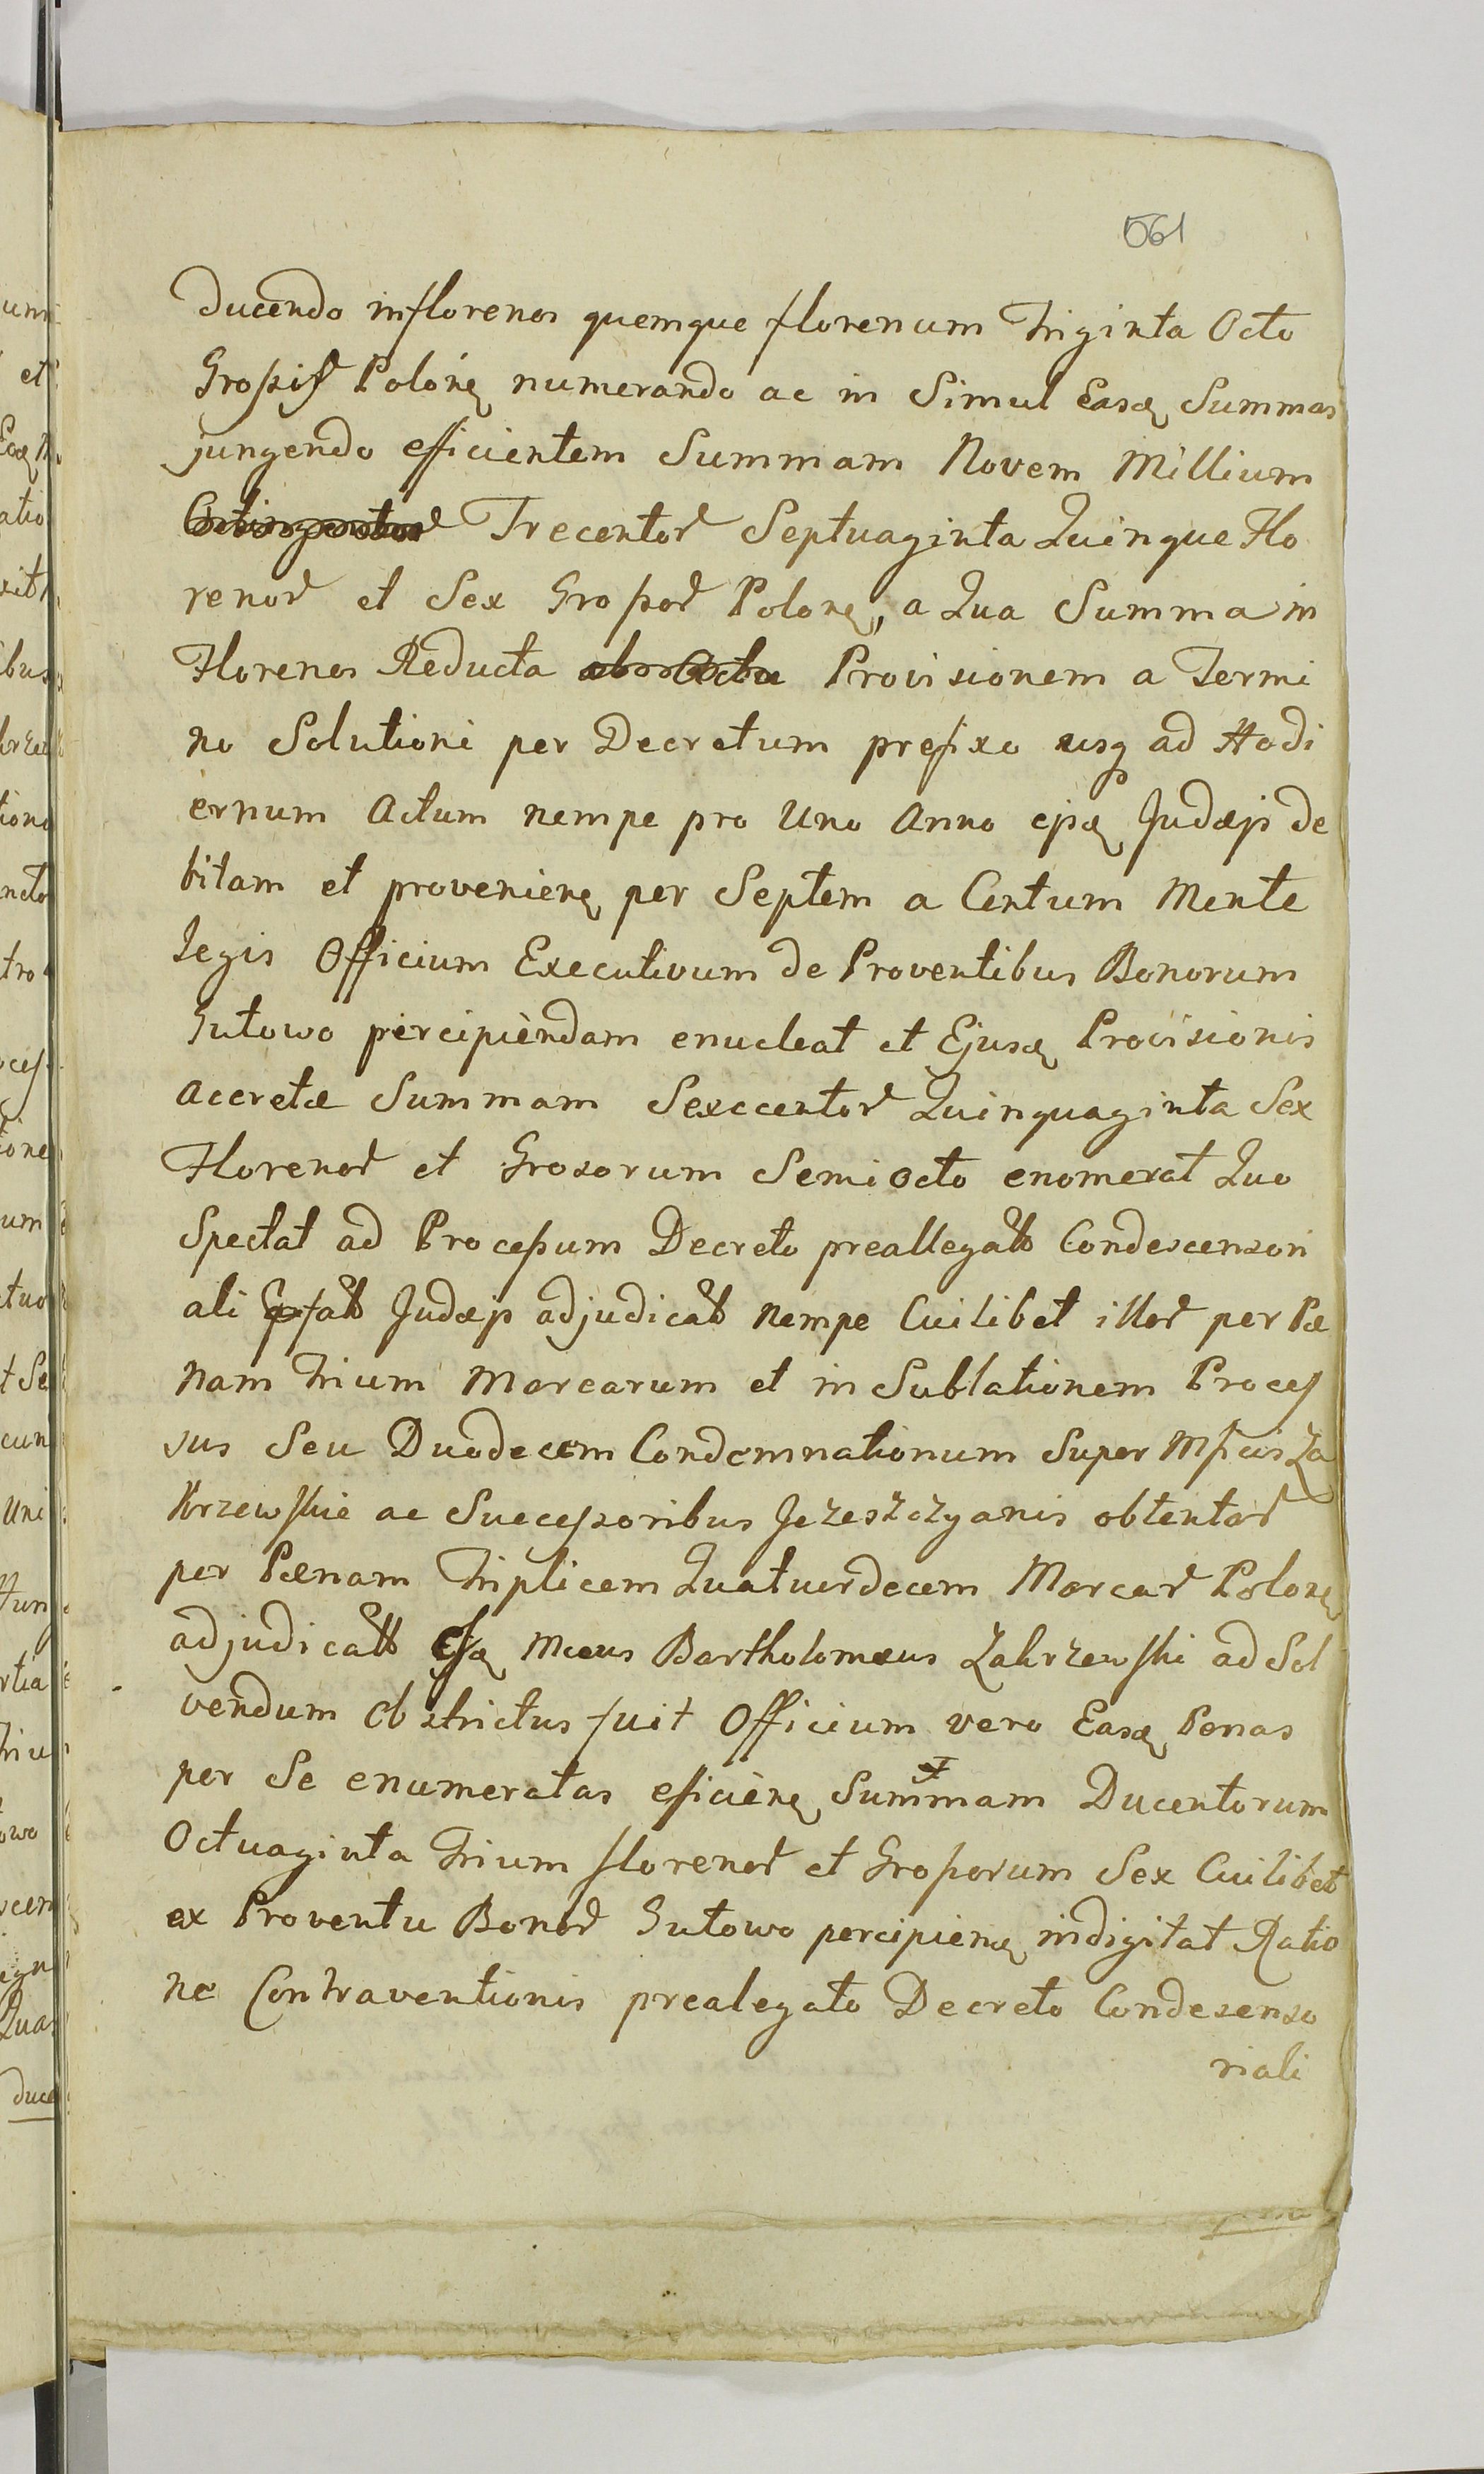 561
ducendo in florenos quemque florenum Triginta Octo
Grossis Polonę numerando ac in Simul Easdę Summas
jungendo efficientem Summam Novem Millium
Trecentor Septuaginta Quinque Flo
renor et Sex Grossor Polonę, a Qua Summa in
Florenos Reducta Provisionem a Termi
no Solutioni per Decretum prefixo usq ad Hodi
ernum Actum nempe pro Uno Anno Judæis de
bitam et provenienę per Septem a Centum Mente
Legis Officium Executivum de Proventibus Bonorum
Gutowo percipièndam enucleat et Ejusdę Provisionis
Accretæ Summam Sexccentor Quinquaginta Sex
Florenor et Grosorum Semiocto enomerat Quo
Spectat ad Processum Decreto preallegato Condescensori
ali Judæis adjudicato Nempe Cuilibet illor per Pæ
nam Trium Marcarum et in Sublationem Proces
sus Seu Duodecem Condemnationum Super Mficis Za
krzewskie ac Successoribus Jezeszczyanis obtentar
per Pænam Triplicem Quatuerdecem Marcar Polonę
adjudicato Mcus Bartholomæus Zakrzewski ad Sol
vendum Obstrictus fuit Officium vero Easdę Penas
per Se enumeratas eficienę Summam Ducentorum
Octuaginta Trium florenor et Grossorum Sex Cuilibet
ex Proventu Bonor Gutowo percipienę indigitat Ratio
ne Contraventionis prealegato Decreto Condesenso
riali